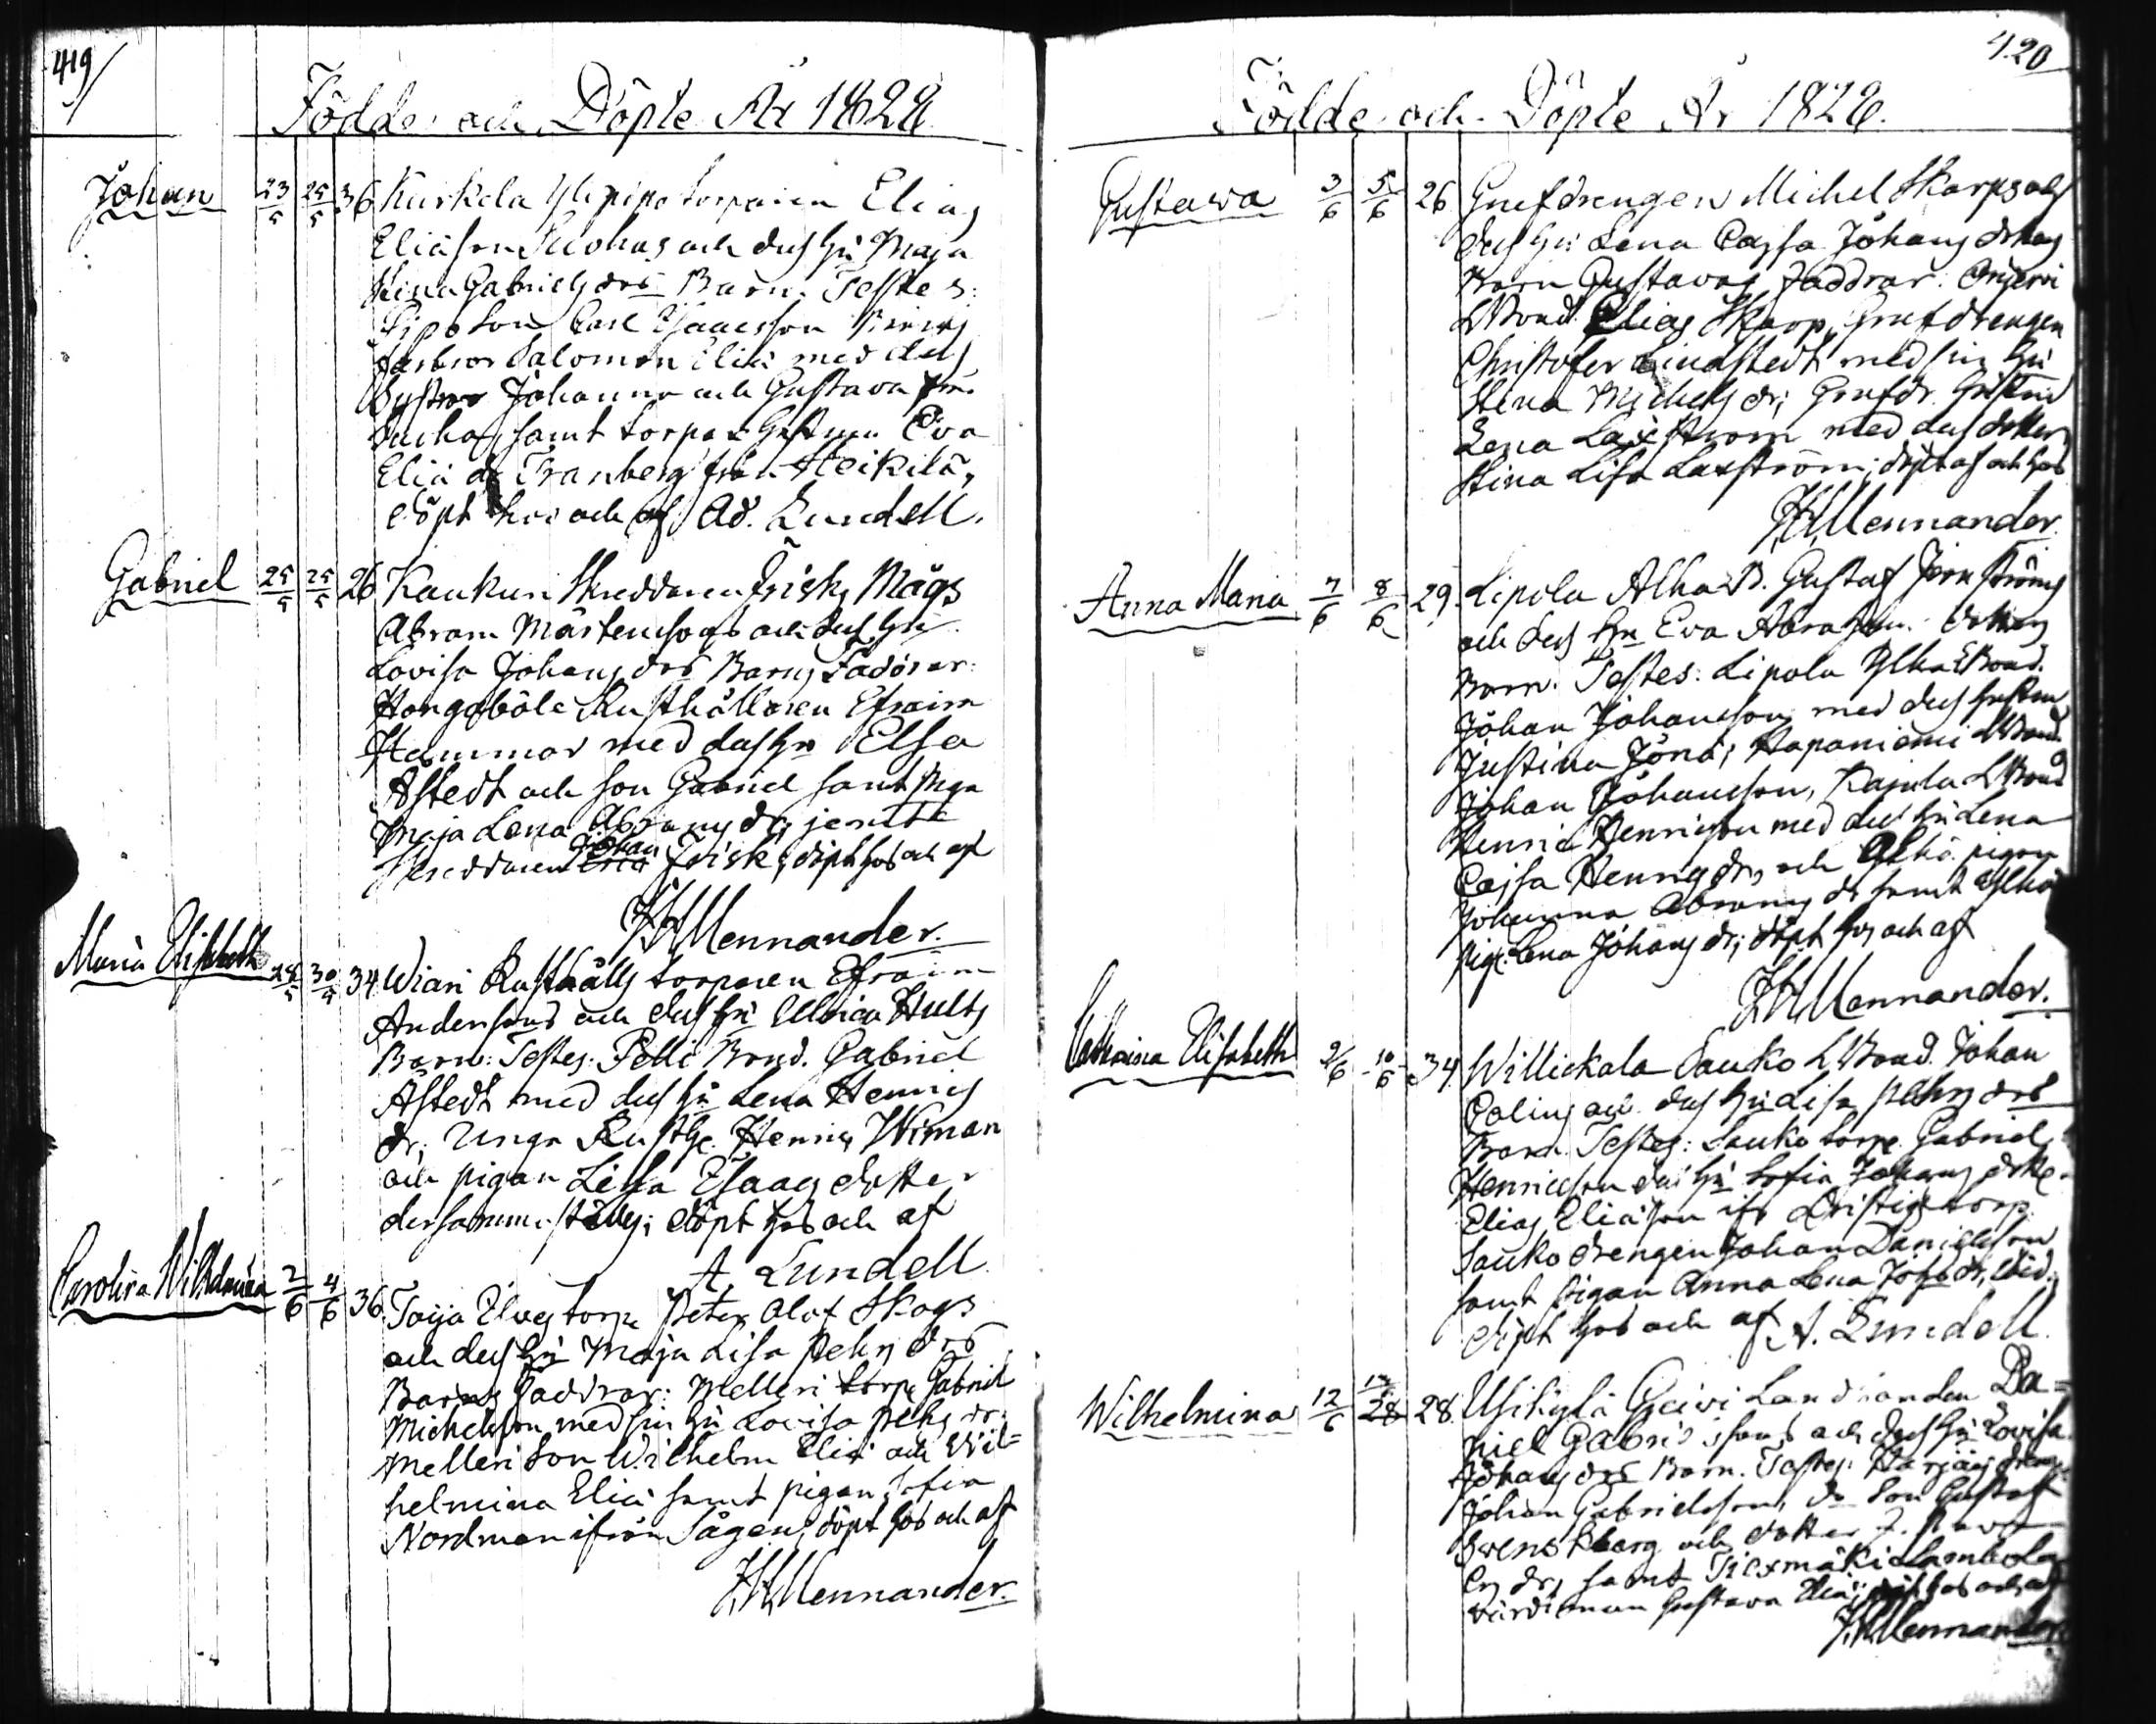 419
Födde och Döpte År 1828
Johan 23/5 25/5 36 Kurkela torparen Elias
Eliäson och dess hu Maja
Stina Gabriels drs Barn. Testes:
son Carl Isaacsson
Salomon Eliä med dess
Systrar Johanna och Gustava
samt torpar hustrun Eva
Eliä dr Tranberg från Heikilä,
döpt hos och af Ad. Lundell.
Gabriel 25/5 25/5 26 Kaukuri Skreddaren Frisks Mågs
Abram Mårtensons och dess hu
Lovisa Johans drs Barns Faddrar:
Hongaböle Rusthållaren Efraim
Hammar med dess hu Elsa
Åstedt och son Gabriel samt
Maja Lena Abrams dr, jemte
Skreddaren Johan Frisk; döpt hos och af
Mennander.
Maria Elisabeth 28/5 30/5 34 Wiari Rusthålls torparen Efraim
Andersons och dess hu Ulrica Hults
Barn: Testes: Pelli Bond. Gabriel
Åstedt med dess hu Lena Henrics
dr; Unga Rusth. Henric Wiman
och pigan Lissa Isaacs dotter
dersammastädes; döpt hos och af
A. Lundell
Carolina Wilhelmina 2/6 4/6 36. torp. Peter Olof Skogs
och dess hu Maja Lisa Pehrs drs
Barns Faddrar: Melleri torp. Gabriel
Michelsson med sin hu Lovisa Pehrs dr.
Melleri Son Wilhelm Eliä och Wil=
helmina Eliä samt pigan Sofia
Nordman ifrån Sågen; döpt hos och af
Mennander.
420
Födde och Döpte År 1828.
Gustava 3/6 5/6 26 Grufdrengen Michel Skarps och
dess hu Lena Cajsa Johans dotters
Barn Gustavas Faddrar: Onjervi
LBond. Elias Skarp, Grufdrengen
Christofer Lindstedt med sin hu
Stina Michels dr; Grufdr. hustru
Lena Laxström med dess dotter
Stina Lisa Laxström; döpt af och hos
Mennander.
Anna Maria 7/6 8/6 29. Lipola Alha B. Gustaf Jernströms
och dess hu Eva Abrahams dotters
Barn. Testes: Lipola Ylha LBond.
Johan Johansson med dess hustru
Justina Jona; Hapaniemi LBond.
Johan Johansson, Kajala LBond
Henric Henricsson med dess hu Lena
Cajsa Henrics dr, och pigan
Johanna Abrams dr samt
pig. Lena Johans dr; döpt hos och af
Mennander.
Catharina Elisabeth 9/6 10/6 34. Willickala Sauko LBond. Johan
och dess hu Lisa Pehrs drs
Barn. Testes: Sauko torp. Gabriel
Henricsson dess hu Sofia Johans dotter
Elias Eliäson ifr. torp
Sauko drengen Johan Danielsson
samt pigan Anna Lena Johs dr, ibid.
döpt hos och af A. Lundell.
Wilhelmina 12/6 28. Landbonden Da=
niel Gabrielsons och dess hu Lovisa
Johans drs Barn. Testes: Harjä
Johan Gabrielsson, Son Gustaf
Svenskberg och dotter
dr, samt
Gustava Eliä; döpt hos och af
Mennander